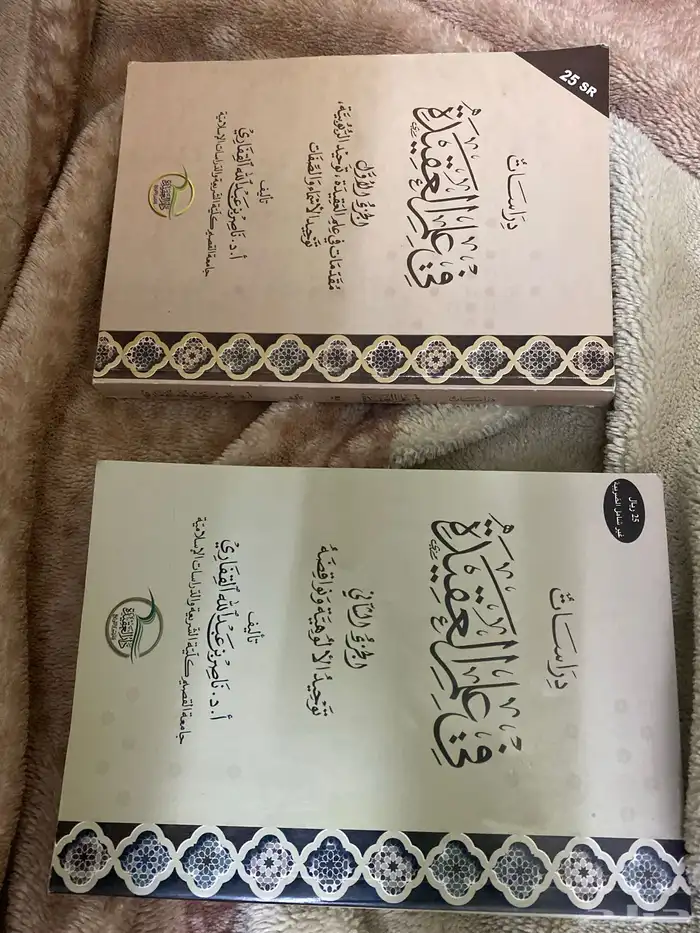 25 SR
دِرَاسَاتٌ
فِي عِلْمِ العَقِيدَةِ
الجُزْءُ الأَوَّلُ
مُقَدِّمَات فِي عِلْمِ العَقِيدَة، تَوْحِيد الرُّبُوبِيَّة،
تَوْحِيد الأَسْمَاءِ وَالصِّفَات
تأليف
أ. د. نَاصِر بْن عَبْدِ اللَّه القِفَارِيّ
جامعة القصيم كلية الشريعة والدراسات الإسلامية
25 ريال
غير شامل الضريبة
دِرَاسَاتٌ
فِي عِلْمِ العَقِيدَةِ
الجُزْءُ الثَّانِي
تَوْحِيدُ الأُلُوهِيَّةِ وَنَوَاقِضُهُ
تأليف
أ. د. نَاصِر بْن عَبْدِ اللَّه القِفَارِيّ
جامعة القصيم كلية الشريعة والدراسات الإسلامية
دار العقيدة